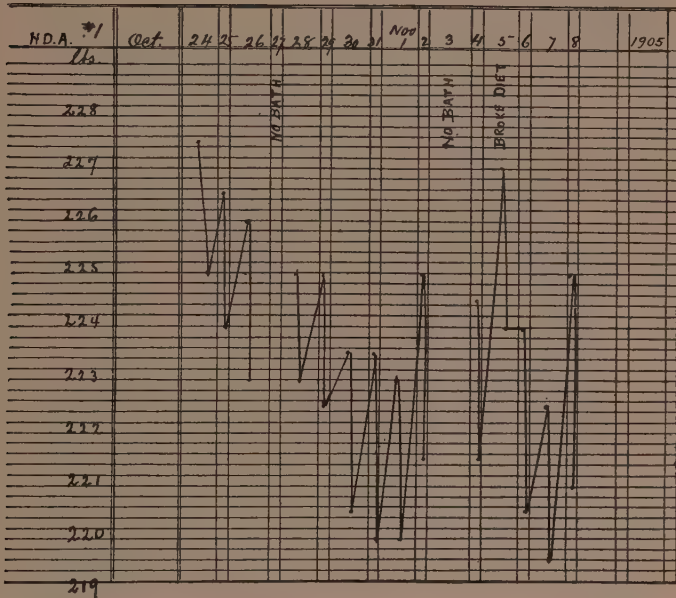 H.D.A. #1 Oct. 24 25 26 27 28 29 30 31 Nov 1 2 3 4 5 6 7 8 1905
lbs.
NO BATH
NO BATH
BROKE DIET
228
227
226
225
224
223
222
221
220
219